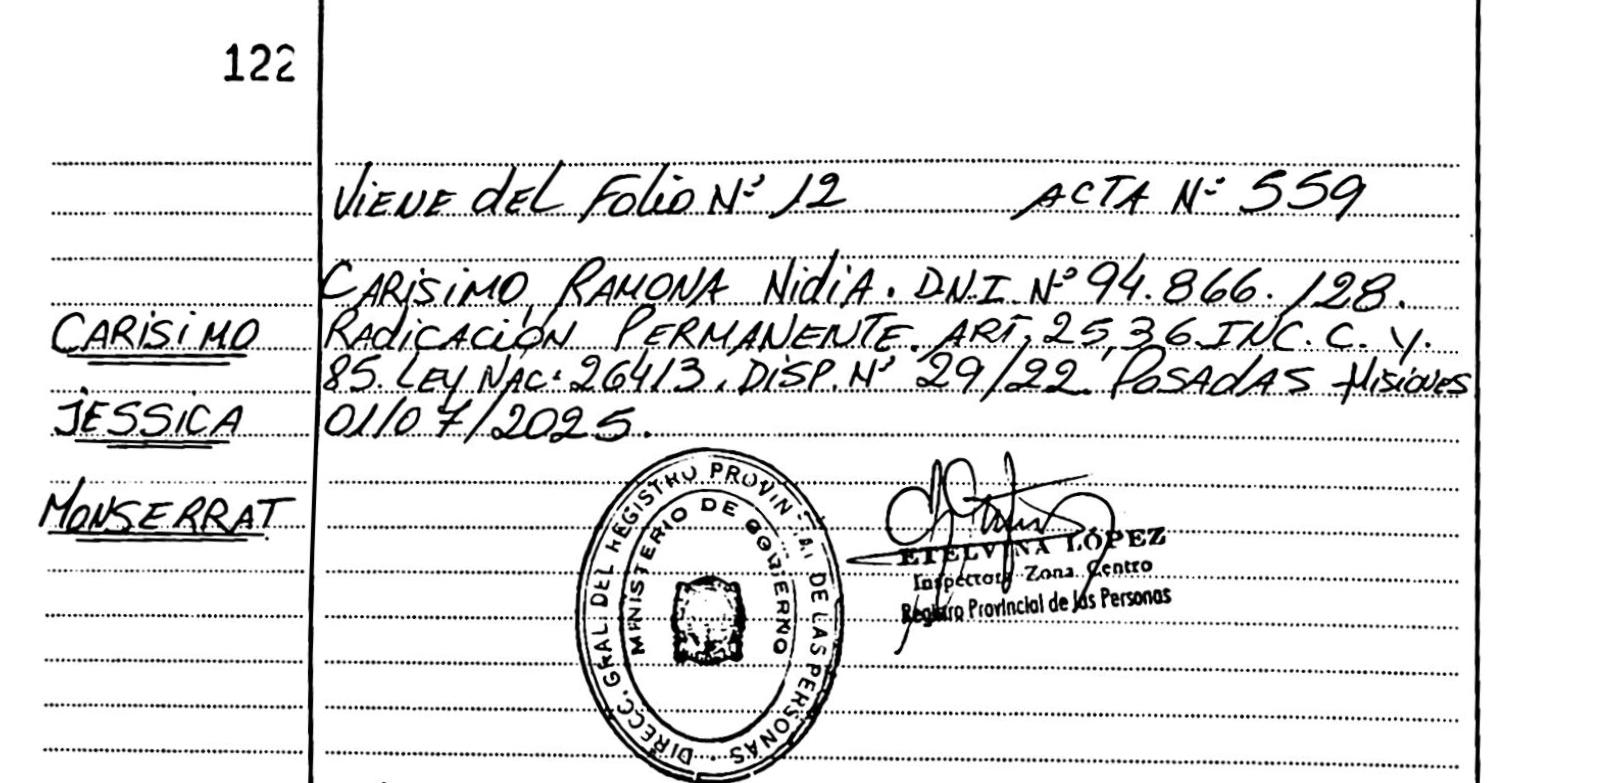 122
Viene del Folio Nº 12 ACTA Nº 559
CARISIMO, RAMONA NidiA. D.N.I. Nº 94.866.128.
CARISIMO
RAdicACIÓN PERMANENTE. ART. 25,36 INC. C. Y.
85. LEY NAC. 26413. DISP. Nº 29/22. POSADAS Misiones
JESSICA
01/07/2025.
MONSERRAT
DIRECC. GRAL DEL REGISTRO PROVINCIAL DE LAS PERSONAS
MINISTERIO DE GOBIERNO
ETELVINA LÓPEZ
Inspectora Zona Centro
Registro Provincial de las Personas